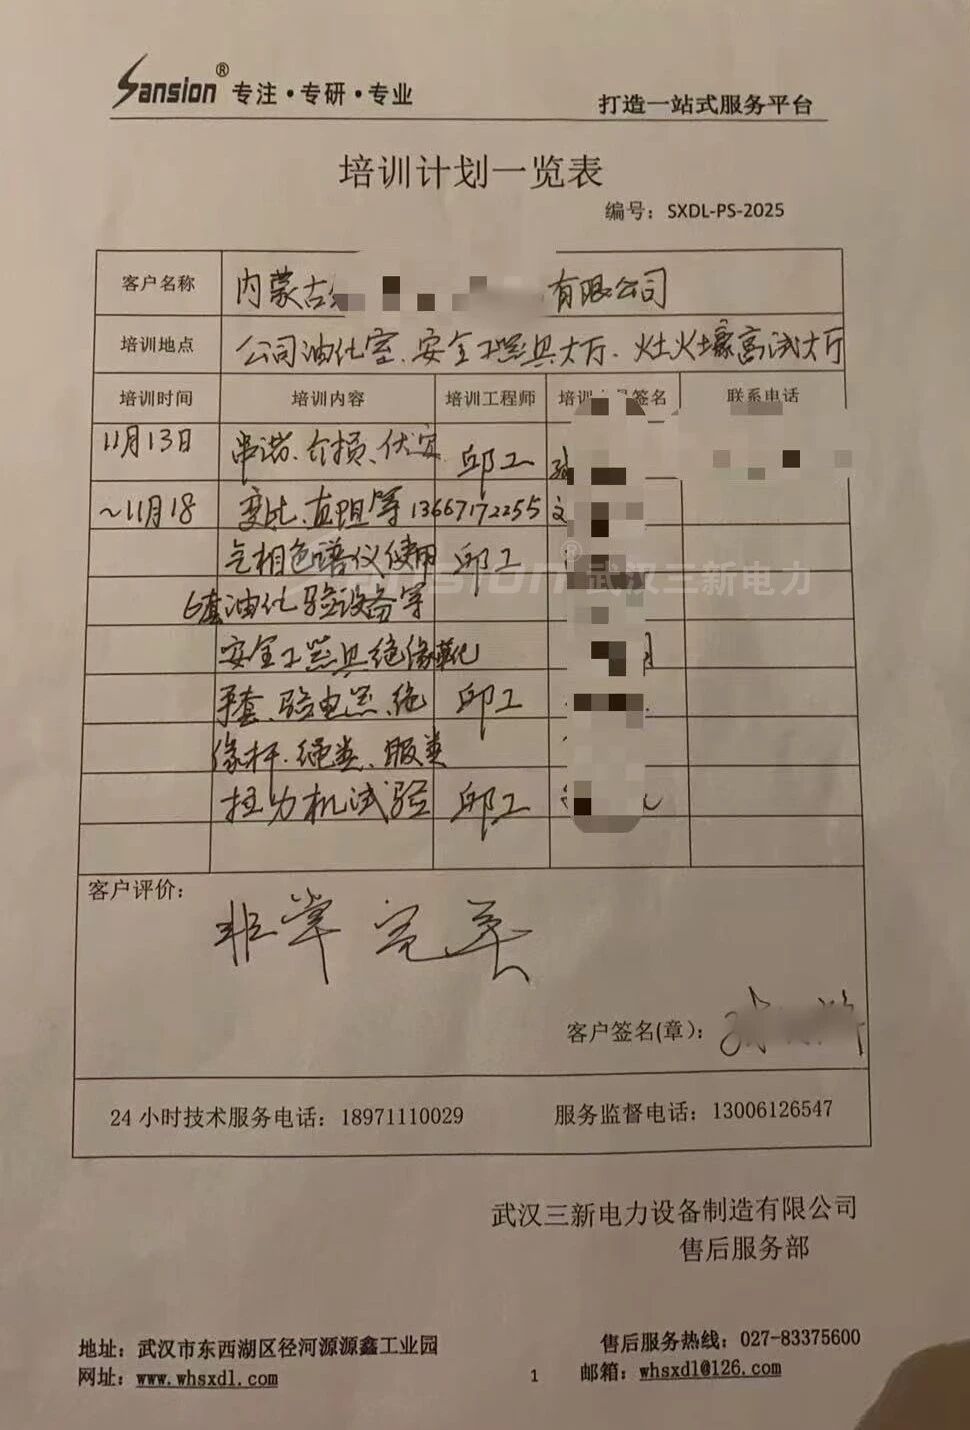 Sansion® 专注·专研·专业
打造一站式服务平台
培训计划一览表
编号：SXDL-PS-2025
客户名称 内蒙古 有限公司
培训地点 公司油化室、安全工器具大厅、灶火壕高试大厅
培训时间 培训内容 培训工程师 培训 签名 联系电话
11月13日 串谐、介损、伏安 邱工
～11月18 变比、直阻等 13667172255
气相色谱仪使用 邱工
6套油化验设备等
安全工器具绝缘靴化
手套、验电器、绝 邱工
缘杆、绳类、服类
拉力机试验 邱工
客户评价：
非常完美
客户签名(章)：
24 小时技术服务电话：18971110029 服务监督电话：13006126547
武汉三新电力设备制造有限公司
售后服务部
地址：武汉市东西湖区径河源源鑫工业园 售后服务热线：027-83375600
网址：www.whsxdl.com 1 邮箱：whsxdl@126.com
Sansion® 武汉三新电力